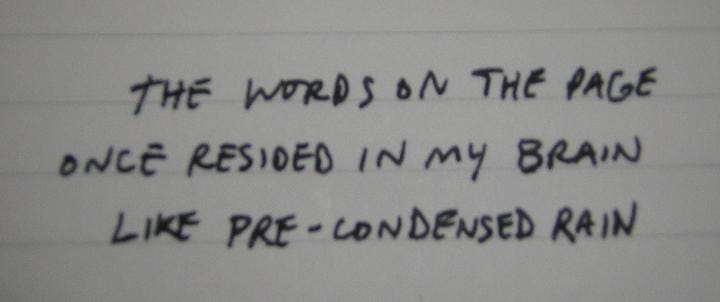 THE WORDS ON THE PAGE
ONCE RESIDED IN MY BRAIN
LIKE PRE-CONDENSED RAIN